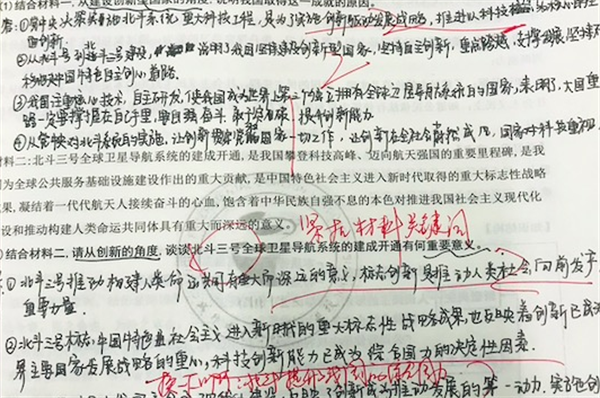 (1) 结合材料一,从建设创新型国家的角度,说明我国取得这一成就的原因。
答:①党中央决策 北斗系统重大科技工程,是为了实施创新驱动发展战略,推进以科技
②从北斗一号到北斗三号建设, 说明了我国坚持建设创新型国家,坚持自主创新,重点跨越,支撑发展,坚持
中国特色自主创新道路.
③我国注重核心技术,自主研发,使我国成为世界上第三个独立拥有全球卫星导航系统的国家,表明了,大国重
器一定要掌握在自己手里,要自强奋斗,敢于突破,提升创新能力
④从 北斗系统的实施,让创新贯穿党和国家一切工作,让创新在全社会蔚然成风,国家对科技重视
材料二:北斗三号全球卫星导航系统的建成开通,是我国攀登科技高峰、迈向航天强国的重要里程碑,是我
为全球公共服务基础设施建设作出的重大贡献,是中国特色社会主义进入新时代取得的重大标志性战略
果,凝结着一代代航天人接续奋斗的心血,饱含着中华民族自强不息的本色对推进我国社会主义现代化
设和推动构建人类命运共同体具有重大而深远的意义。
紧扣材料关键词
) 结合材料二,请从创新的角度,谈谈北斗三号全球卫星导航系统的建成开通有何重要意义。
①北斗三号推动构建人类命运共同有重大而深远的意义,标志创新是推动人类社会向前发产
重要力量.
②北斗三号标志,中国特色社会主义进入新时代的重大标志性战略成果,也反映着创新已成
界主要国家发展战略的重心,科技创新能力已成为综合国力的决定性因素.
创新成为推动发展的第一动力,实施创